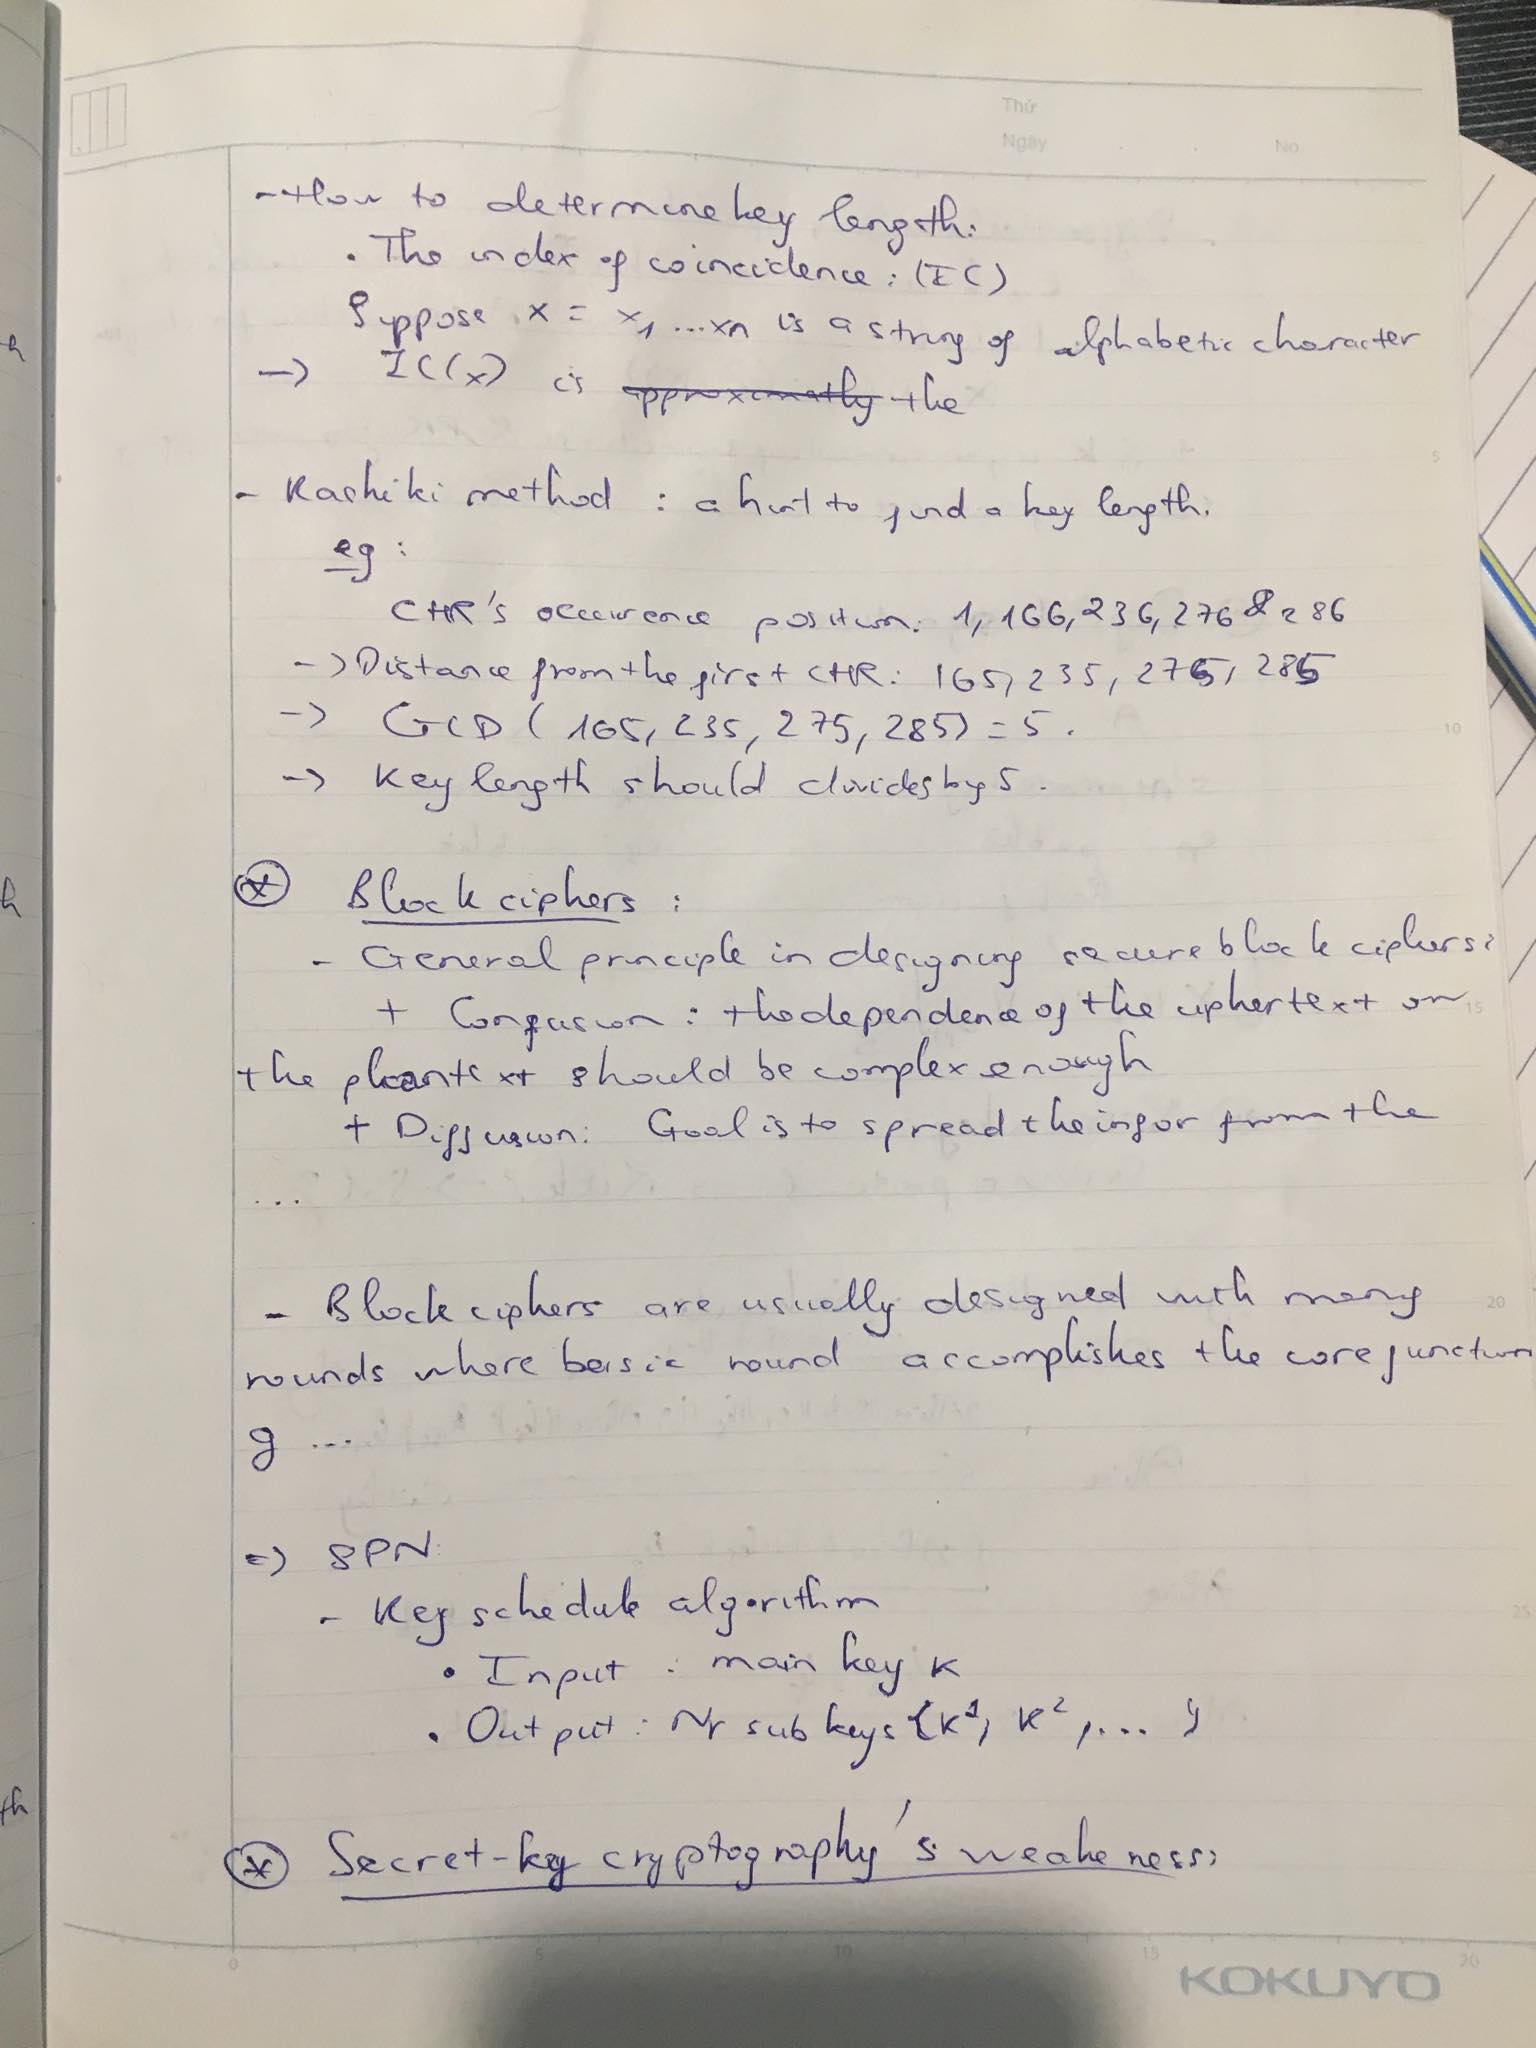 Thứ
Ngày . . No
- How to determine key length:
. The index of coincidence : (IC)
Suppose x = x1 ... xn is a string of alphabetic character
-> IC(x) is approximatly the
- Kashiki method : a hint to find a key length.
eg :
CHR's occurrence position: 1, 166, 236, 276 & 286
-> Distance from the first CHR: 165, 235, 275, 285
-> GCD ( 165, 235, 275, 285) = 5.
-> Key length should divides by 5.
* Block ciphers :
- General principle in designing secure block ciphers:
+ Confusion : the dependence of the ciphertext on
the plaintext should be complex enough
+ Diffusion: Goal is to spread the infor from the
...
- Block ciphers are usually designed with many
rounds where basic round accomplishes the core function
g ...
=> SPN:
- Key schedule algorithm
• Input : main key K
• Output : Nr subkeys {K1, K2, ... }
* Secret-key cryptography's weakeness:
5
10
15
20
25
0 5 10 15 20
KOKUYO
h
h
th